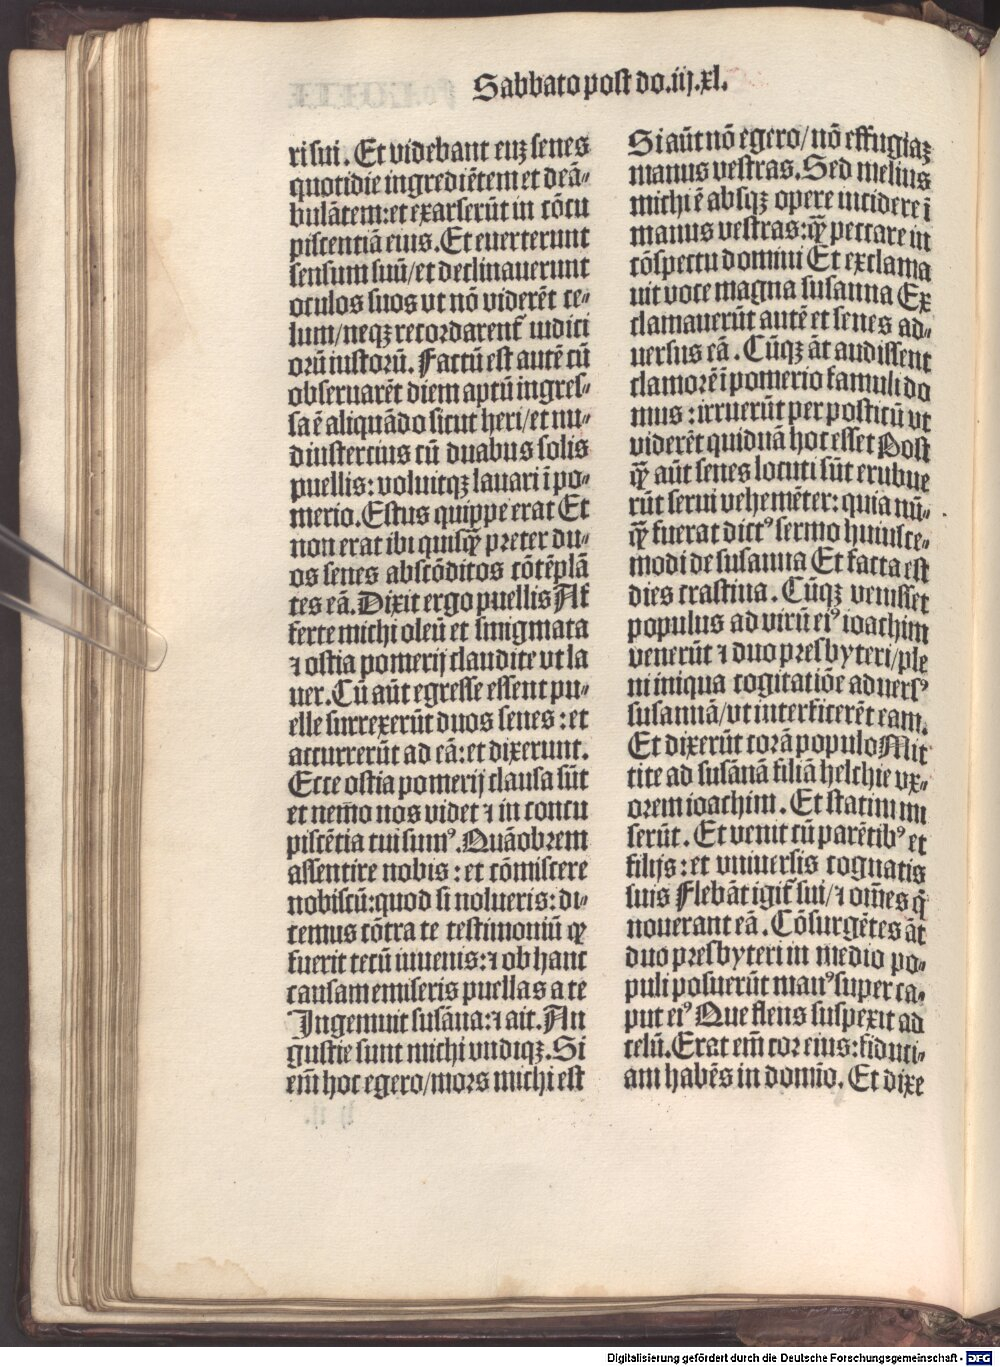 Sabbato post do.iij.xl.
ri sui. Et videbant eūʒ senes
quotidie ingrediētem et deā⸗
bulātem: et exarserūt in cōcu
piscentiā eius. Et euerterunt
sensum suū/et declinauerunt
oculos suos vt nō viderēt ce⸗
lum/neqʒ recordarent̄ iudici
orū iustorū. Factū est autē cū
obseruarēt diem aptū ingres⸗
sa ē aliquādo sicut heri/et nu⸗
diustercius cū duabus solis
puellis: voluitqʒ lauari ī po⸗
merio. Estus quippe erat Et
non erat ibi quisqꝫ preter du⸗
os senes abscōditos cōtēplā
tes eā. Dixit ergo puellis Af
ferte michi oleū et smigmata
⁊ ostia pomerij claudite vt la
uer. Cū aūt egresse essent pu⸗
elle surrexerūt duos senes: et
accurrerūt ad eā: et dixerunt.
Ecce ostia pomerij clausa sūt
et nem̄o nos videt ⁊ in concu
piscētia tui sumꝰ. Quāobrem
assentire nobis: et cōmiscere
nobiscū: quod si nolueris: di⸗
cemus cōtra te testimoniū qꝫ
fuerit tecū iuuenis: ⁊ ob hanc
causam emiseris puellas a te
Ingemuit susāna: ⁊ ait. An
gustie sunt michi vndiqʒ. Si
em̄ hoc egero/mors michi est
Si aūt nō egero/nō effugiaʒ
manus vestras. Sed melius
michi ē absqʒ opere incidere ī
manus vestras: qꝫ peccare in
cōspectu domini Et exclama
uit voce magna susanna Ex
clamauerūt autē et senes ad⸗
uersus eā. Cūqʒ āt audissent
clamorē ī pomerio famuli do
mus: irruerūt per posticū vt
viderēt quiduā hoc esset Post
qꝫ aūt senes locuti sūt erubue
rūt serui vehemēter: quia nū⸗
qꝫ fuerat dictꝰ sermo huiusce⸗
modi de susanna Et facta est
dies crastina. Cūqʒ venisset
populus ad virū eiꝰ ioachim
venerūt ⁊ duo presbyteri/ple
ni iniqua cogitatiōe aduersꝰ
susannā/vt interficerēt eam.
Et dixerūt corā populo Mit
tite ad susānā filiā helchie vx⸗
orem ioachim. Et statim mi
serūt. Et venit cū parētibꝰ et
filijs: et vniuersis cognatis
suis Flebāt igit̄ sui/⁊ om̄es q̄
nouerant eā. Cōsurgētes āt
duo presbyteri in medio po⸗
puli posuerūt manꝰ super ca⸗
put eiꝰ Que flens suspexit ad
celū. Erat em̄ cor eius: fiduci⸗
am habēs in domīo. Et dixe
Digitalisierung gefördert durch die Deutsche Forschungsgemeinschaft - DFG